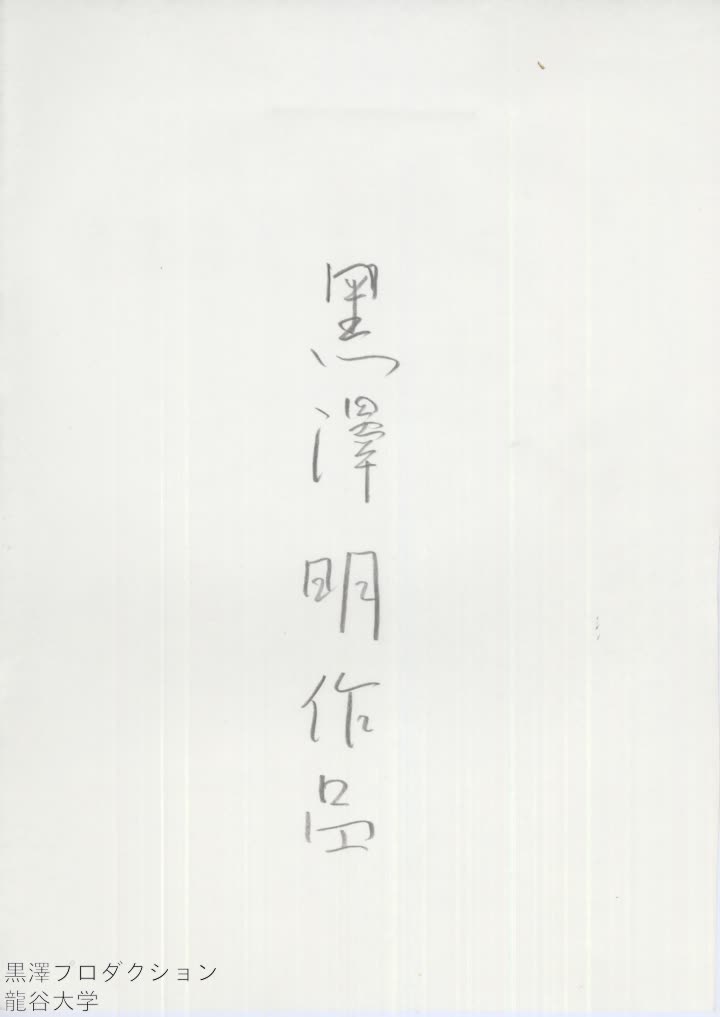 黒澤明作品
黒澤プロダクション
龍谷大学